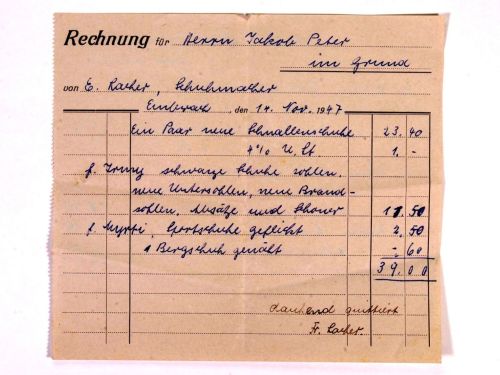 Rechnung für Herrn Jakob Peter
im Grund
von E. Racher, Schuhmacher
Embrach, den 14. Nov. 1947
Ein Paar neue Schnallenschuhe 23.40
4% U. St 1.-
f. Irmy schwarze Schuhe sohlen,
neue Untersohlen, neue Brand-
sohlen, Absätze und Schoner 11.50
f. Myrti, Sportschuhe geflickt 2.50
1 Bergschuh genäht -.60
39.00
dankend quittiert
Fr. Racher.